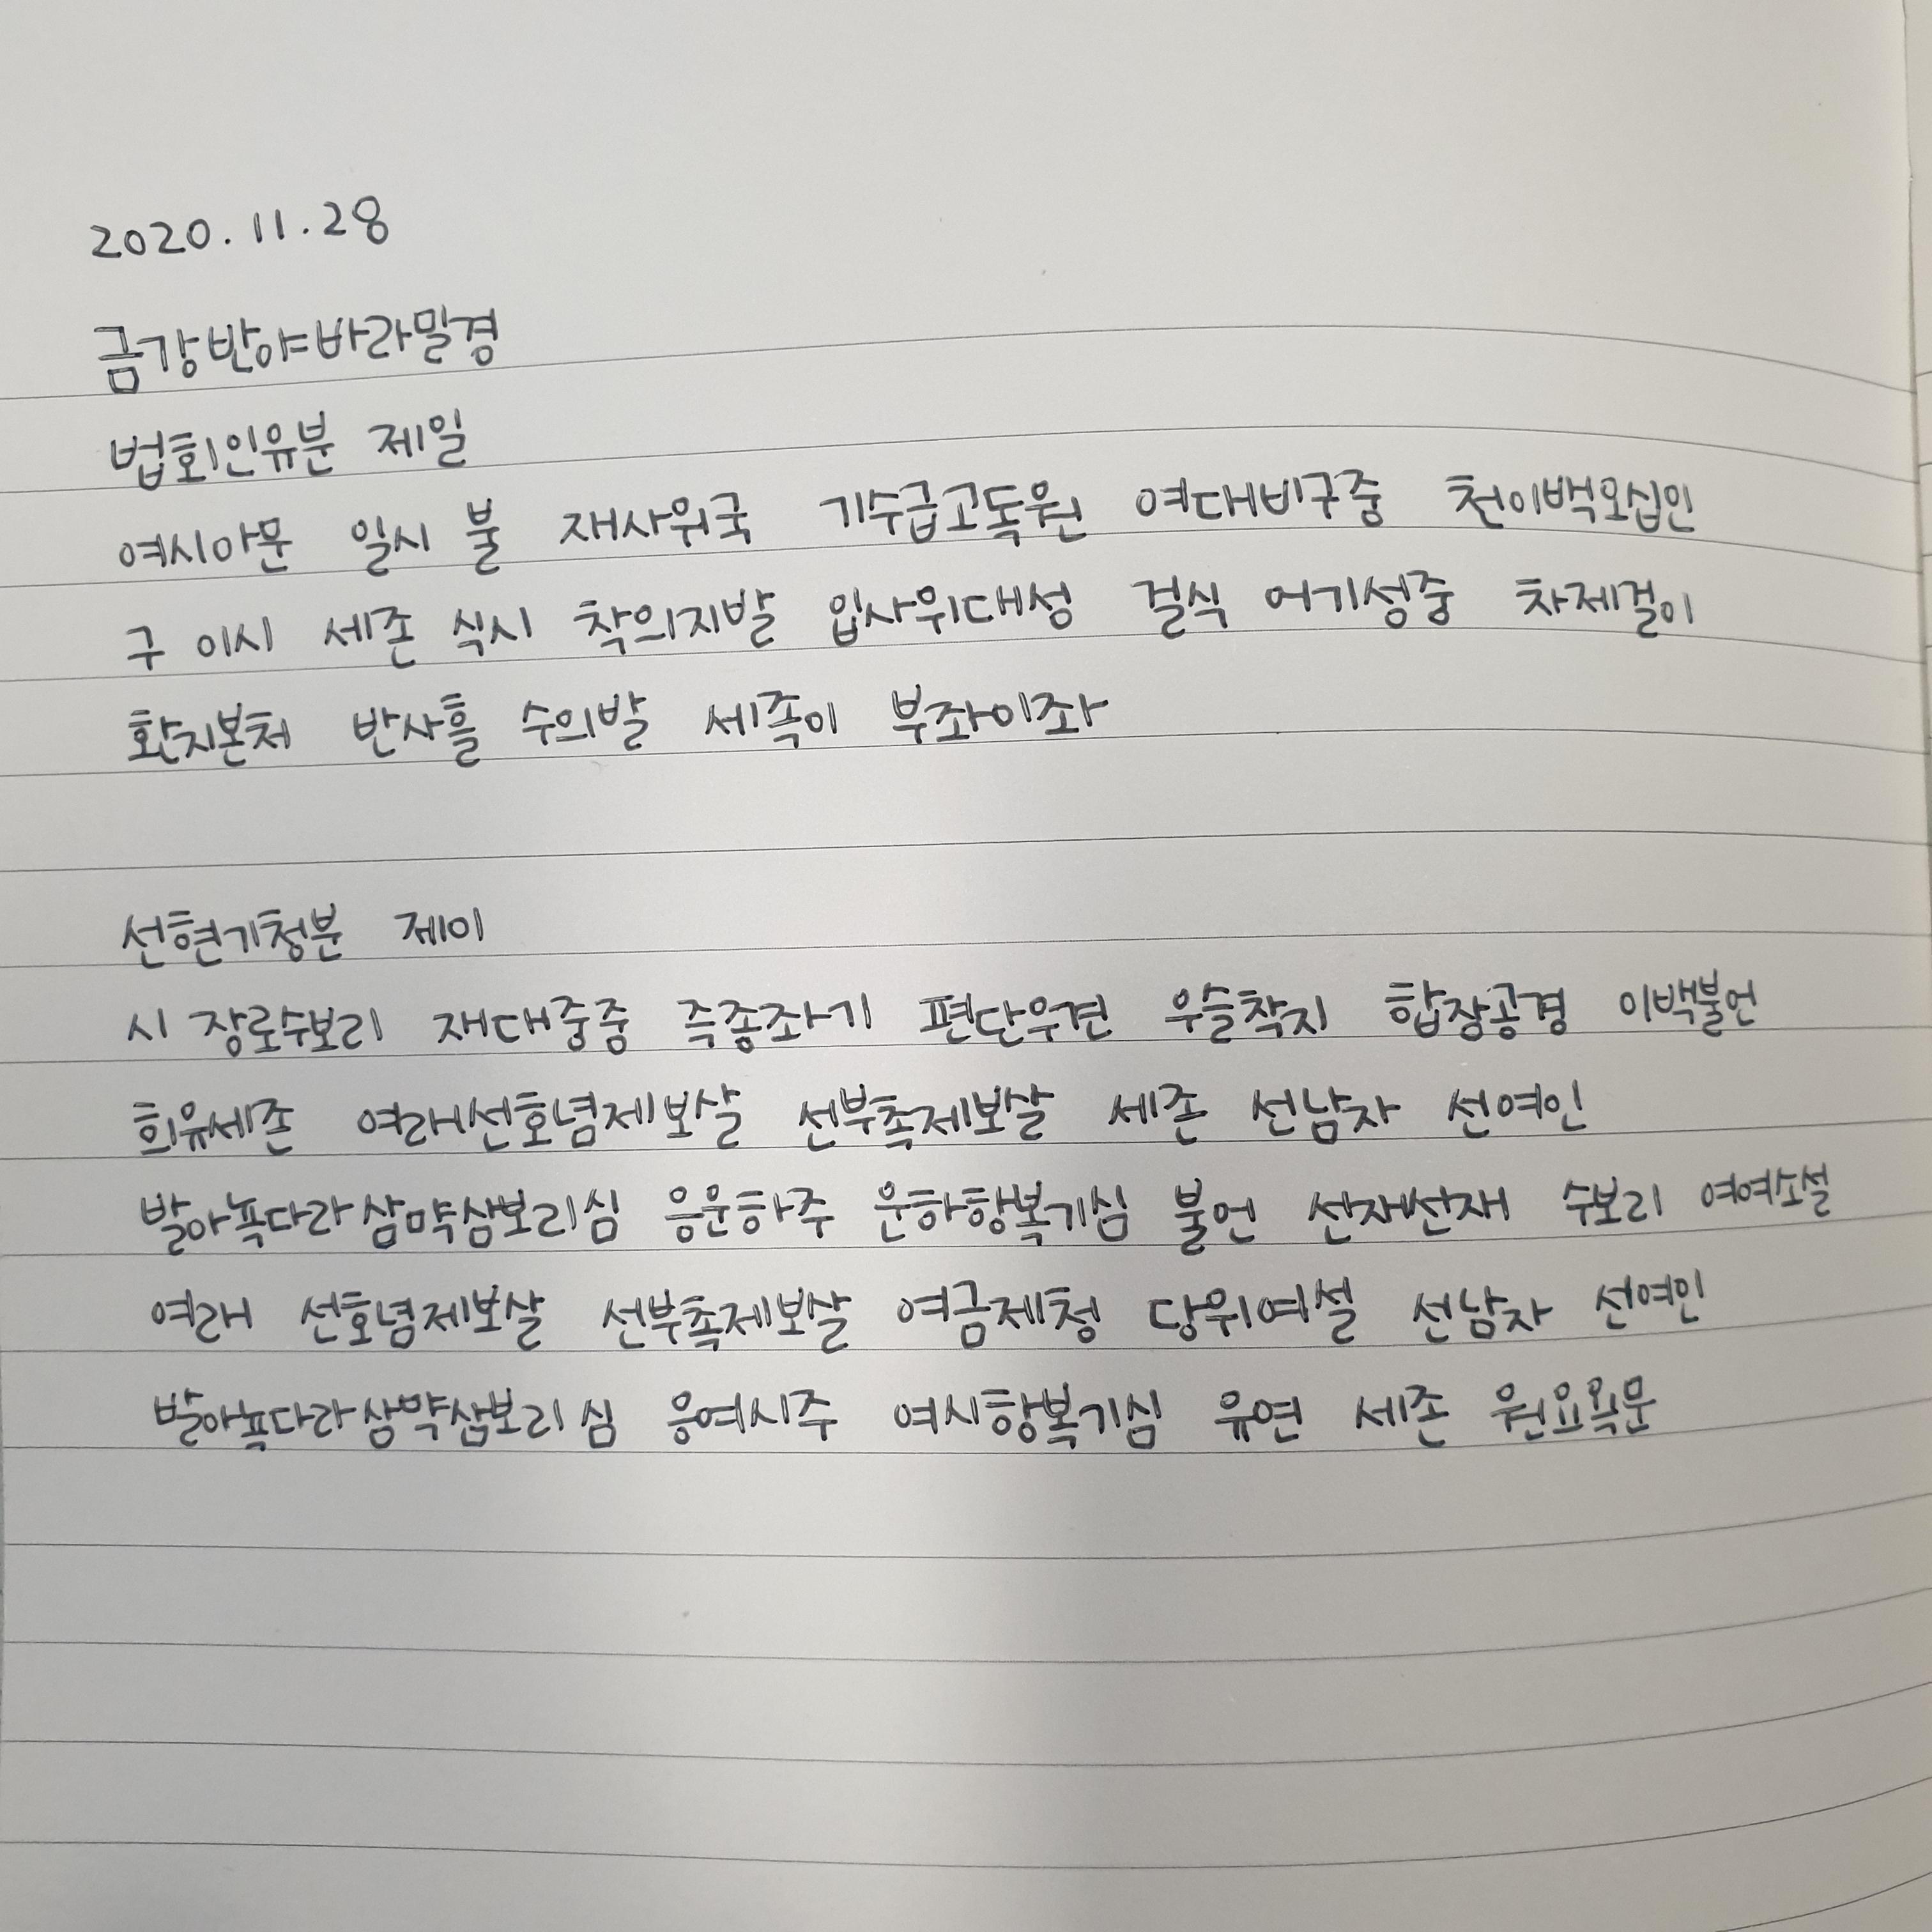 2020.11.28
금강반야바라밀경
법회인유분 제일
여시아문 일시 불 재사위국 기수급고독원 여대비구중 천이백오십인
구 이시 세존 식시 착의지발 입사위대성 걸식 어기성중 차제걸이
환지본처 반사흘 수의발 세족이 부좌이좌
선현기청분 제이
시 장로수보리 재대중중 즉종좌기 편단우견 우슬착지 합장공경 이백불언
희유세존 여래선호념제보살 선부촉제보살 세존 선남자 선여인
발아뇩다라삼먁삼보리심 응운하주 운하항복기심 불언 선재선재 수보리 여여소설
여래 선호념제보살 선부촉제보살 여금제청 당위여설 선남자 선여인
발아뇩다라삼먁삼보리심 응여시주 여시항복기심 유연 세존 원요욕문